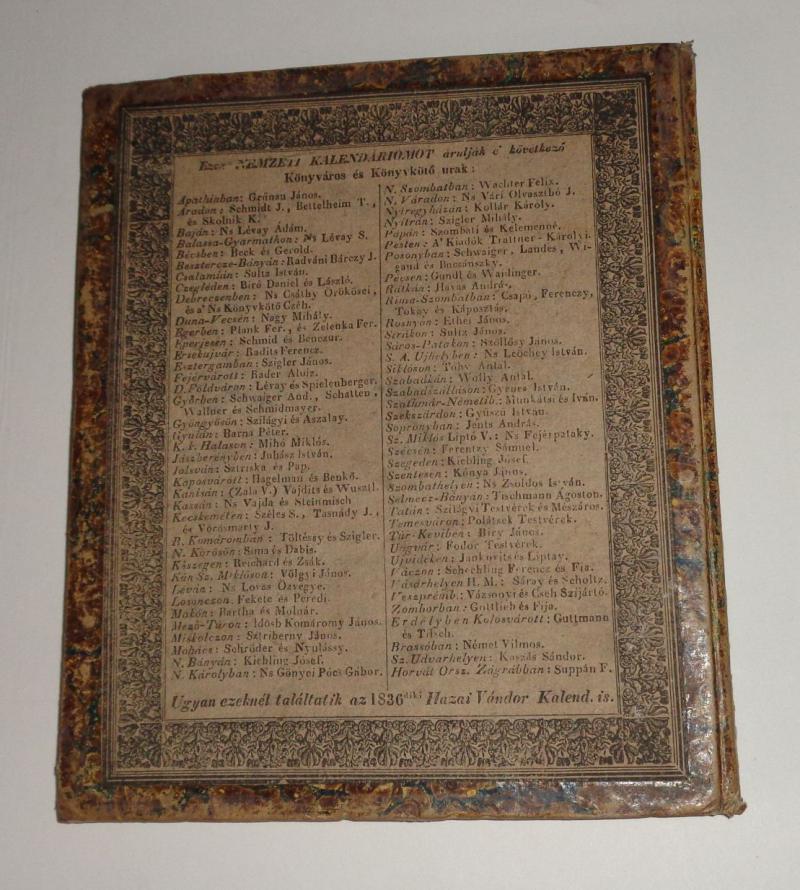 Ezen NEMZETI KALENDÁRIOMOT árulják e' következő
Könyváros és Könyvkötő urak:
Apathinban: Grünau János.
Aradon: Schmidt J., Bettelheim T.,
és Skolnik K.
Baján: Ns Lévay Ádám.
Balassa-Gyarmathon: Ns Lévay S.
Bécsben: Beck és Gerold.
Besztercze-Bányán: Radváni Bárczy J.
Csalamián: Sultz István.
Czegléden: Biró Daniel és László.
Debreczenben: Ns Csáthy Örökösei,
és a' Ns Könyvkötő Czéh.
Duna-Vecsén: Nagy Mihály.
Egerben: Plank Fer., és Zelenka Fer.
Eperjesen: Schmid és Benczur.
Érsekujvár: Radits Ferencz.
Esztergamban: Szigler János.
Fejérvárott: Rader Aloiz.
D. Földváron: Lévay és Spielenberger.
Győrben: Schwaiger And., Schatten,
Wallner és Schmidmayer.
Gyöngyösön: Szilágyi és Aszalay.
Gyulán: Barna Péter.
K. F. Halason: Mihó Miklós.
Jászberényben: Juhász István.
Jolsván: Sztriska és Pap.
Kaposvárott: Hagelman és Benkő.
Kanisán: (Zala V.) Vajdits és Wusztl.
Kassán: Ns Vajda és Steinmisch
Kecskeméten: Széles S., Tasnády J.,
és Vörösmarty J.
R. Komáromban: Töltéssy és Szigler.
N. Körösön: Sima és Dabis.
Köszegen: Reichard és Zsák.
Kún Sz. Miklóson: Völgyi János.
Léván: Ns Lovas Özvegye.
Losonczon: Fekete és Peredi.
Makón: Bartha és Molnár.
Mező-Túron: Idősb Komáromy János.
Miskolczon: Sztriberny János.
Mohács: Schröder és Nyulássy.
N. Bányán: Kiehling Jósef.
N. Károlyban: Ns Gönyei Pócs Gábor.
N. Szombatban: Wachter Felix.
N. Váradon: Ns Vári Olvasztbó J.
Nyiregyházán: Kollár Károly.
Nyitrán: Szigler Mihály.
Pápán: Szombati és Kelemenné.
Pesten: A' Kiadók Trattner-Károlyi.
Posonyban: Schwaiger, Landes, Wi-
gand és Bucsánszky.
Pécsen: Gundl és Waidinger.
Rátkán: Havas András.
Rima-Szombatban: Csapó, Ferenczy,
Tokay és Káposztás.
Rosnyón: Ethei János.
Sáros-Patakon: Szöllősy János.
S. A. Ujhelyben: Ns Leöchey István.
Siklóson: Tóhy Antal.
Szabadkán: Wolly Antal.
Szabadszálláson: Gyenes István.
Szathmár-Németib.: Munkátsi és Iván.
Szekszárdon: Gyüszü István.
Sopronyban: Jents András.
Sz. Miklós Liptó V.: Ns Fejérpataky.
Szécsén: Ferentzy Sámuel.
Szegeden: Kiebling Jósef.
Szentesen: Kónya János.
Szombathelyen: Ns Zsoldos István.
Selmecz-Bányán: Tischmann Ágoston.
Tatán: Szilágyi Testvérek és Mészáros.
Temesváron: Polátsek Testvérek.
Túr-Keviben: Biry János.
Ungvár: Fodor Testvérek.
Ujvidéken: Jankovits és Liptay.
Váczon: Schechling Ferencz és Fia.
Vásárhelyen H. M.: Sáray és Scholtz.
Veszprémb.: Vázsonyi és Cseh Szijártó.
Zomborban: Gottlieb és Fija.
Erdélyben Kolosvárott: Guttmann
és Tilsch.
Brassóban: Német Vilmos.
Sz. Udvarhelyen: Kaszás Sándor.
Horvát Orsz. Zágrábban: Suppán F.
Ugyan ezeknél találtatik az 1836diki Hazai Vándor Kalend. is.